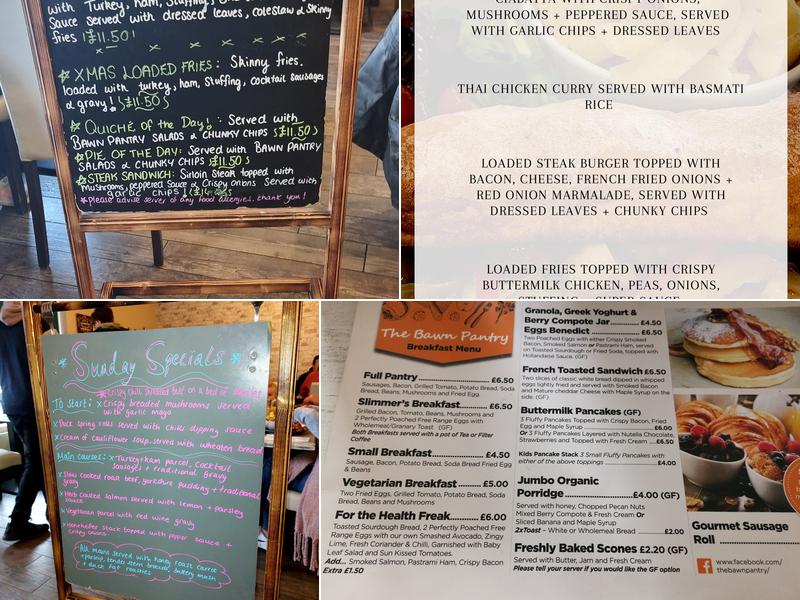 with Turkey, ham, Stuffing,
Sauce served with dressed leaves, coleslaw & Skinny
fries !£11.50!
XMAS LOADED FRIES: Skinny fries.
loaded with turkey, ham, Stuffing, cocktail sausages
& gravy! £11.50
QUICHE of the Day!: Served with
BAWN PANTRY SALADS & CHUNKY CHIPS £11.50
PIE OF THE DAY: Served with BAWN PANTRY
SALADS & CHUNKY CHIPS £11.50
STEAK SANDWICH: Sirloin Steak topped with
mushrooms, peppered sauce & Crispy onions Served with
garlic chips!
*please advise server of any food allergies, thank you!
CIABATTA WITH CRISPY ONIONS,
MUSHROOMS + PEPPERED SAUCE, SERVED
WITH GARLIC CHIPS + DRESSED LEAVES
THAI CHICKEN CURRY SERVED WITH BASMATI
RICE
LOADED STEAK BURGER TOPPED WITH
BACON, CHEESE, FRENCH FRIED ONIONS +
RED ONION MARMALADE, SERVED WITH
DRESSED LEAVES + CHUNKY CHIPS
LOADED FRIES TOPPED WITH CRISPY
BUTTERMILK CHICKEN, PEAS, ONIONS,
STUFFING + SUPER SAUCE
* Sunday Specials *
x Crispy chilli shredded beef on a bed of
To Start: x Crispy breaded mushrooms served
with garlic mayo
x Duck spring rolls served with chilli dipping sauce
x Cream of cauliflower soup served with wheaten bread
Main courses: x Turkey + ham parcel, cocktail
sausages + traditional gravy
x Slow cooked roast beef, yorkshire pudding + traditional
gravy
x Herb crusted salmon served with lemon + parsley
sauce
x Vegetarian parcel with red wine gravy
x Henchefer stack topped with pepper sauce +
crispy onions
All mains served with honey roast carrot
+ parsnip, tender stem broccoli, buttery mash
+ duck fat roasties
The Bawn Pantry
Breakfast Menu
Full Pantry £6.50
Sausages, Bacon, Grilled Tomato, Potato Bread, Soda
Bread, Beans, Mushrooms and Fried Egg.
Slimmer's Breakfast £6.50
Grilled Bacon, Tomato, Beans, Mushrooms and
2 Perfectly Poached Free Range Eggs with
Wholemeal/Granary Toast (GF)
Both Breakfasts served with a pot of Tea or Filter
Coffee
Small Breakfast £4.50
Sausage, Bacon, Potato Bread, Soda Bread Fried Egg
& Beans
Vegetarian Breakfast £5.00
Two Fried Eggs, Grilled Tomato, Potato Bread, Soda
Bread, Beans and Mushrooms
For the Health Freak £6.00
Toasted Sourdough Bread, 2 Perfectly Poached Free
Range Eggs with our own Smashed Avocado, Zingy
Lime, Fresh Coriander & Chilli, Garnished with Baby
Leaf Salad and Sun Kissed Tomatoes.
Add... Smoked Salmon, Pastrami Ham, Crispy Bacon
Extra £1.50
Granola, Greek Yoghurt &
Berry Compote Jar £4.50
Eggs Benedict £6.50
Two Poached Eggs with either Crispy Smoked
Bacon, Smoked Salmon or Pastrami Ham, served
on Toasted Sourdough or Fried Soda, topped with
Hollandaise Sauce. (GF)
French Toasted Sandwich £6.50
Two slices of classic white bread dipped in whipped
eggs lightly fried and served with Smoked Bacon
and Mature cheddar Cheese with Maple Syrup on the
side. (GF)
Buttermilk Pancakes (GF)
3 Fluffy Pancakes Topped with Crispy Bacon, Fried
Egg and Maple Syrup £6.00
Or 3 Fluffy Pancakes Layered with Nutella Chocolate,
Strawberries and Topped with Fresh Cream £6.50
Kids Pancake Stack 3 Small Fluffy Pancakes with
either of the above toppings £4.00
Jumbo Organic
Porridge £4.00 (GF)
Served with honey, Chopped Pecan Nuts
Mixed Berry Compote & Fresh Cream Or
Sliced Banana and Maple Syrup
2xToast - White or Wholemeal Bread £2.00
Freshly Baked Scones £2.20 (GF)
Served with Butter, Jam and Fresh Cream
Please tell your server if you would like the GF option
Gourmet Sausage
Roll
www.facebook.com/
thebawnpantry/